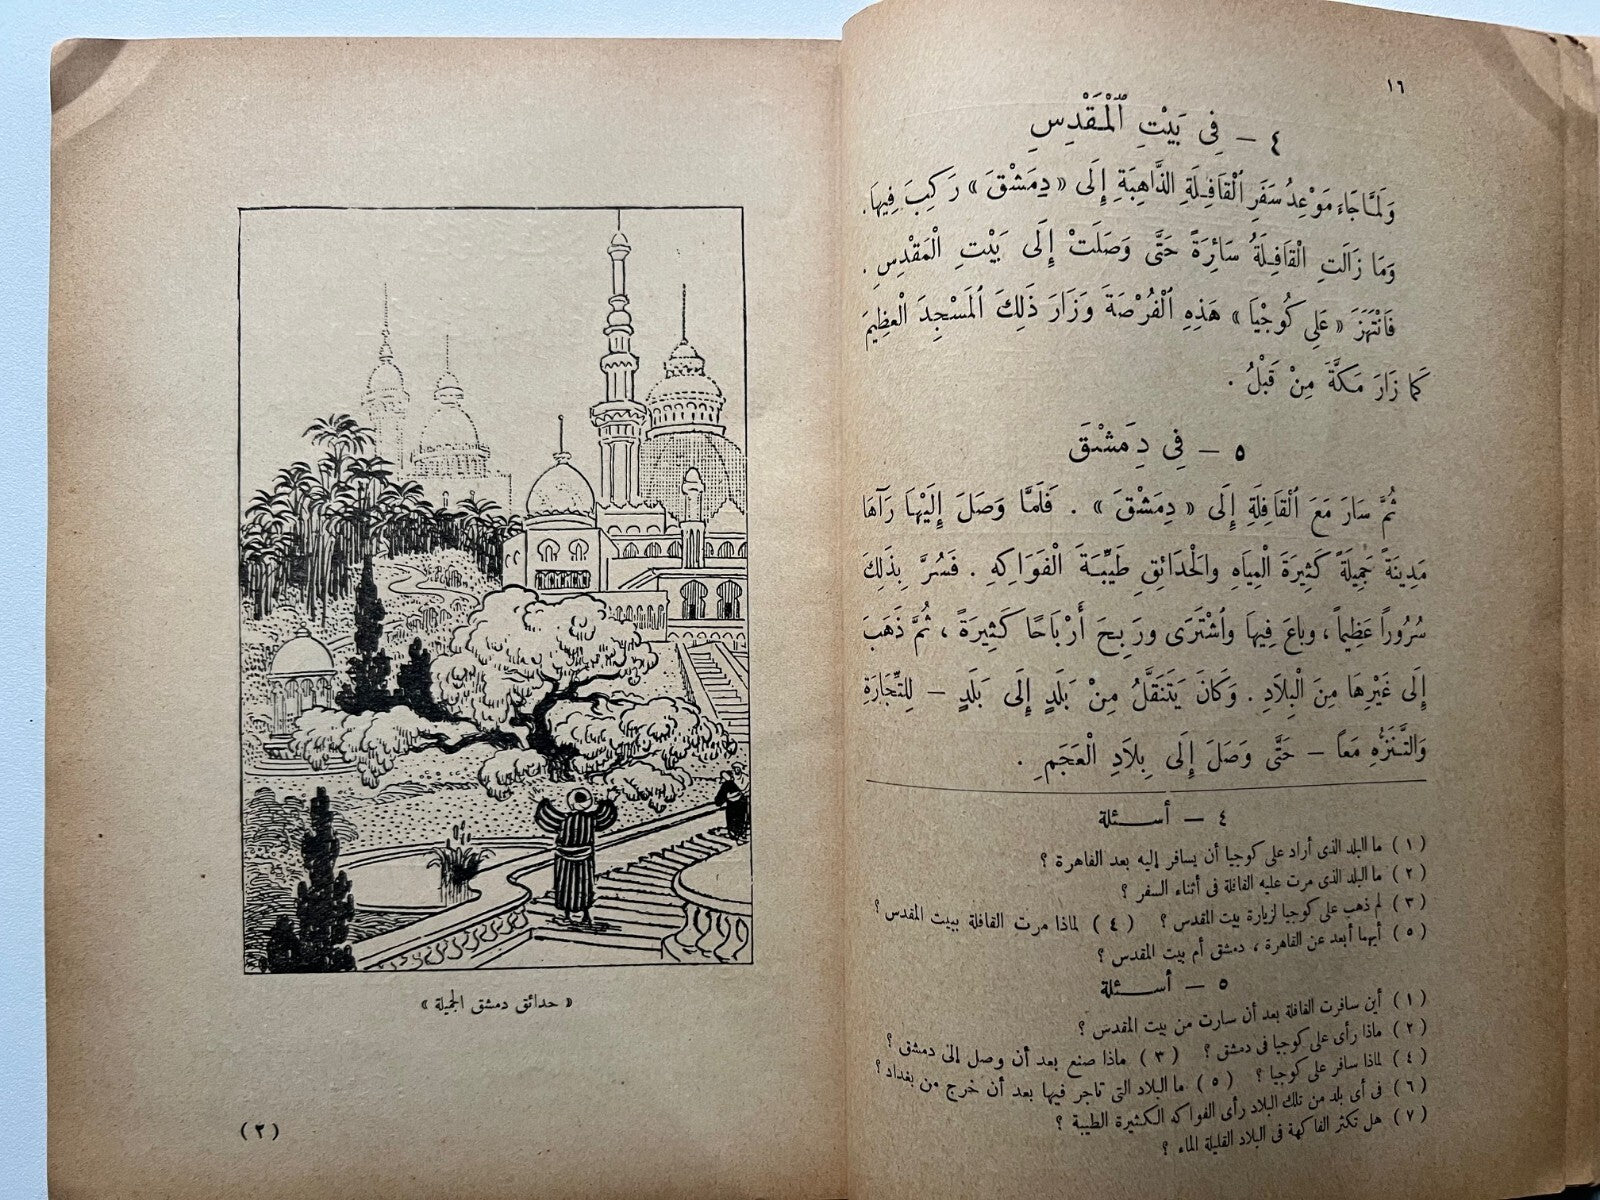 ١٦
٤ - فِي بَيْتِ ٱلْمَقْدِسِ
وَلَمَّا جَاءَ مَوْعِدُ سَفَرِ ٱلْقَافِلَةِ الذَّاهِبَةِ إِلَى « دِمَشْقَ » رَكِبَ فِيهَا .
وَمَا زَالَتِ الْقَافِلَةُ سَائِرَةً حَتَّى وَصَلَتْ إِلَى بَيْتِ الْمَقْدِسِ .
فَانْتَهَزَ « عَلِي كُوجْيَا » هَذِهِ ٱلْفُرْصَةَ وَزَارَ ذَلِكَ ٱلْمَسْجِدَ الْعَظِيمَ
كَمَا زَارَ مَكَّةَ مِنْ قَبْلُ .
٥ - فِي دِمَشْقَ
ثُمَّ سَارَ مَعَ ٱلْقَافِلَةِ إِلَى « دِمَشْقَ » . فَلَمَّا وَصَلَ إِلَيْهَا رَآهَا
مَدِينَةً جَمِيلَةً كَثِيرَةَ الْمِيَاهِ وَالْحَدَائِقِ طَيِّبَةَ الْفَوَاكِهِ . فَسُرَّ بِذَلِكَ
سُرُوراً عَظِيماً ، وَبَاعَ فِيهَا وَاُشْتَرَى وَرَبِحَ أَرْبَاحًا كَثِيرَةً ، ثُمَّ ذَهَبَ
إِلَى غَيْرِهَا مِنَ الْبِلَادِ . وَكَانَ يَتَنَقَّلُ مِنْ بَلَدٍ إِلَى بَلَدٍ - لِلتِّجَارَةِ
وَالتَّنَزُّهِ مَعاً - حَتَّى وَصَلَ إِلَى بِلَادِ الْعَجَمِ .
٤ - أسئلة
( ١ ) ما البلد الذى أراد على كوجيا أن يسافر إليه بعد القاهرة ؟
( ٢ ) ما البلد الذى مرت عليه القافلة فى أثناء السفر ؟
( ٣ ) لم ذهب على كوجيا لزيارة بيت المقدس ؟ ( ٤ ) لماذا مرت القافلة ببيت المقدس ؟
( ٥ ) أيهما أبعد عن القاهرة ، دمشق أم بيت المقدس ؟
٥ - أسئلة
( ١ ) أين سافرت القافلة بعد أن سارت من بيت المقدس ؟
( ٢ ) ماذا رأى على كوجيا فى دمشق ؟ ( ٣ ) ماذا صنع بعد أن وصل إلى دمشق ؟
( ٤ ) لماذا سافر على كوجيا ؟ ( ٥ ) ما البلاد التى تاجر فيها بعد أن خرج من بغداد ؟
( ٦ ) فى أى بلد من تلك البلاد رأى الفواكه الكثيرة الطيبة ؟
( ٧ ) هل تكثر الفاكهة فى البلاد القليلة الماء ؟
« حدائق دمشق الجميلة »
( ٢ )